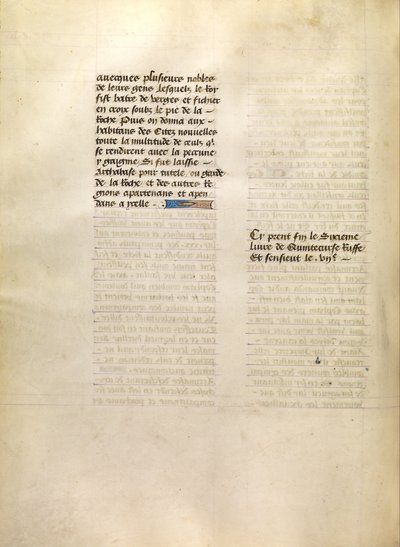 avecques plusieurs nobles
de leurs gens lesquelz le Roy
fist batre de verges et ficher
en croix soubz le pie de la
Roche Puis on donna aux
habitans des Citez nouvelles
toute la multitude de ceulz qui
se rendirent avec la pecune
y gaignie Si fut laissie
Arthabase pour tutele ou garde
de la Roche et des autres Re
gions apartenans et apen
dans a jcelle
Cy prent fin le Sixieme
livre de Quintecurse Ruffe
Et sensieut le vije